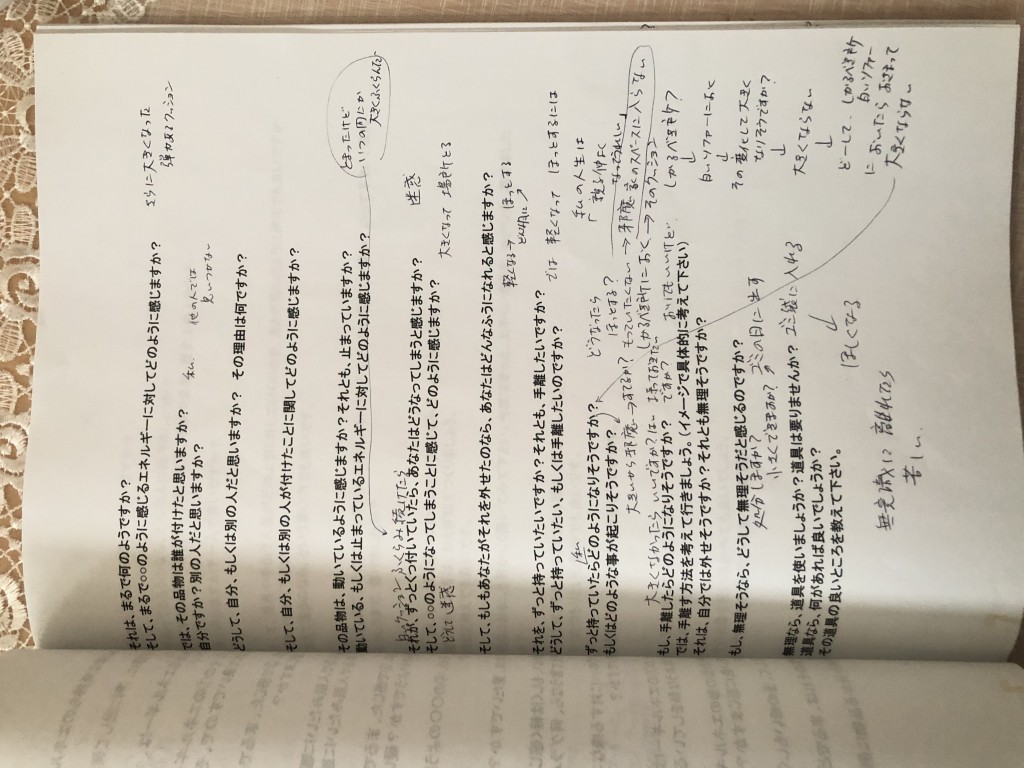 それは、まるで何のようですか？
そして、まるで○○のように感じるエネルギーに対してどのように感じますか？
さらに大きくなった
弾力あるクッション
では、その品物は誰が付けたと思いますか？
自分ですか？別の人だと思いますか？
私
他の人では
見いつからない
どうして、自分、もしくは別の人だと思いますか？　その理由は何ですか？
そして、自分、もしくは別の人が付けたことに関してどのように感じますか？
その品物は、動いているように感じますか？それとも、止まっていますか？
動いている、もしくは止まっているエネルギーに対してどのように感じますか？
とまったけど
いつの間にか
大きくふくらんだ
それが、ずっとくっ付いていたら、あなたはどうなってしまうと感じますか？
そして、○○のようになってしまうことに感じて、どのように感じますか？
迷惑
大きくなって 場所とる
そして、もしもあなたがそれを外せたのなら、あなたはどんなふうになれると感じますか？
軽くなる→ ほっとする
それを、ずっと持っていたいですか？それとも、手離したいですか？
どうして、ずっと持っていたい、もしくは手離したいのですか？
では 軽くなって ほっとするには
私の人生は
ずっと持っていたらどのようになりそうですか？
もしくはどのような事が起こりそうですか？
どうなったら
ほっとする？
邪魔 家のスペースに入らない
大きいから邪魔
しかるべき所におく→そのクッション
もし、手離したらどのようになりそうですか？
では、手離す方法を考えて行きましょう。（イメージで具体的に考えて下さい）
それは、自分では外せそうですか？それとも無理そうですか？
しかるべき所？
↓
白いソファーにおく
↓
その変化して大きく
なりそうですか？
↓
大きくならない
↓
どーして、しかるべき所
に 白いソファー
おいたら おさまって
大きくならない
もし、無理そうなら、どうして無理そうだと感じるのですか？
処分しますか？
小さくできますか？
ゴミの日に出す
無理なら、道具を使いましょうか？道具は要りませんか？
道具なら、何があれば良いでしょうか？
その道具の良いところを教えて下さい。
ゴミ袋に入れる
↓
ほしくなる
無意識に 離れたら
苦しい